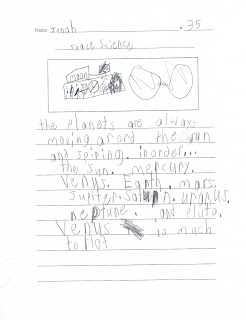 Name: Jonah
# 35
space Science
moon
the Planets are always
moving arord the sun
and spining. inorder...
the sun. mercury.
Venus. Earth. mars.
Jupiter. Saturn. uranus.
neptune. and Pluto.
Venus is much
to hot